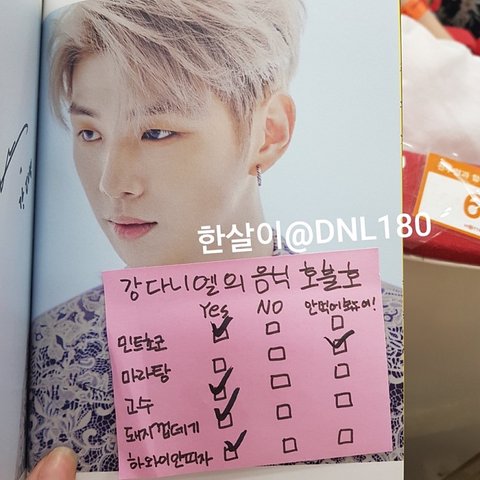 한살이@DNL180
강다니엘의 음식 호불호
Yes NO 안먹어봤어여!
민트초코
마라탕
고수
돼지껍데기
하와이안피자
6